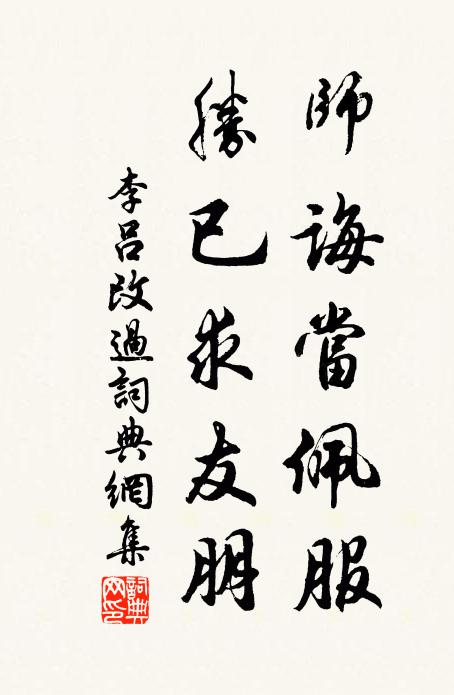 師誨當佩服
勝己求友朋
李吕改過詞典網集
詞典网印